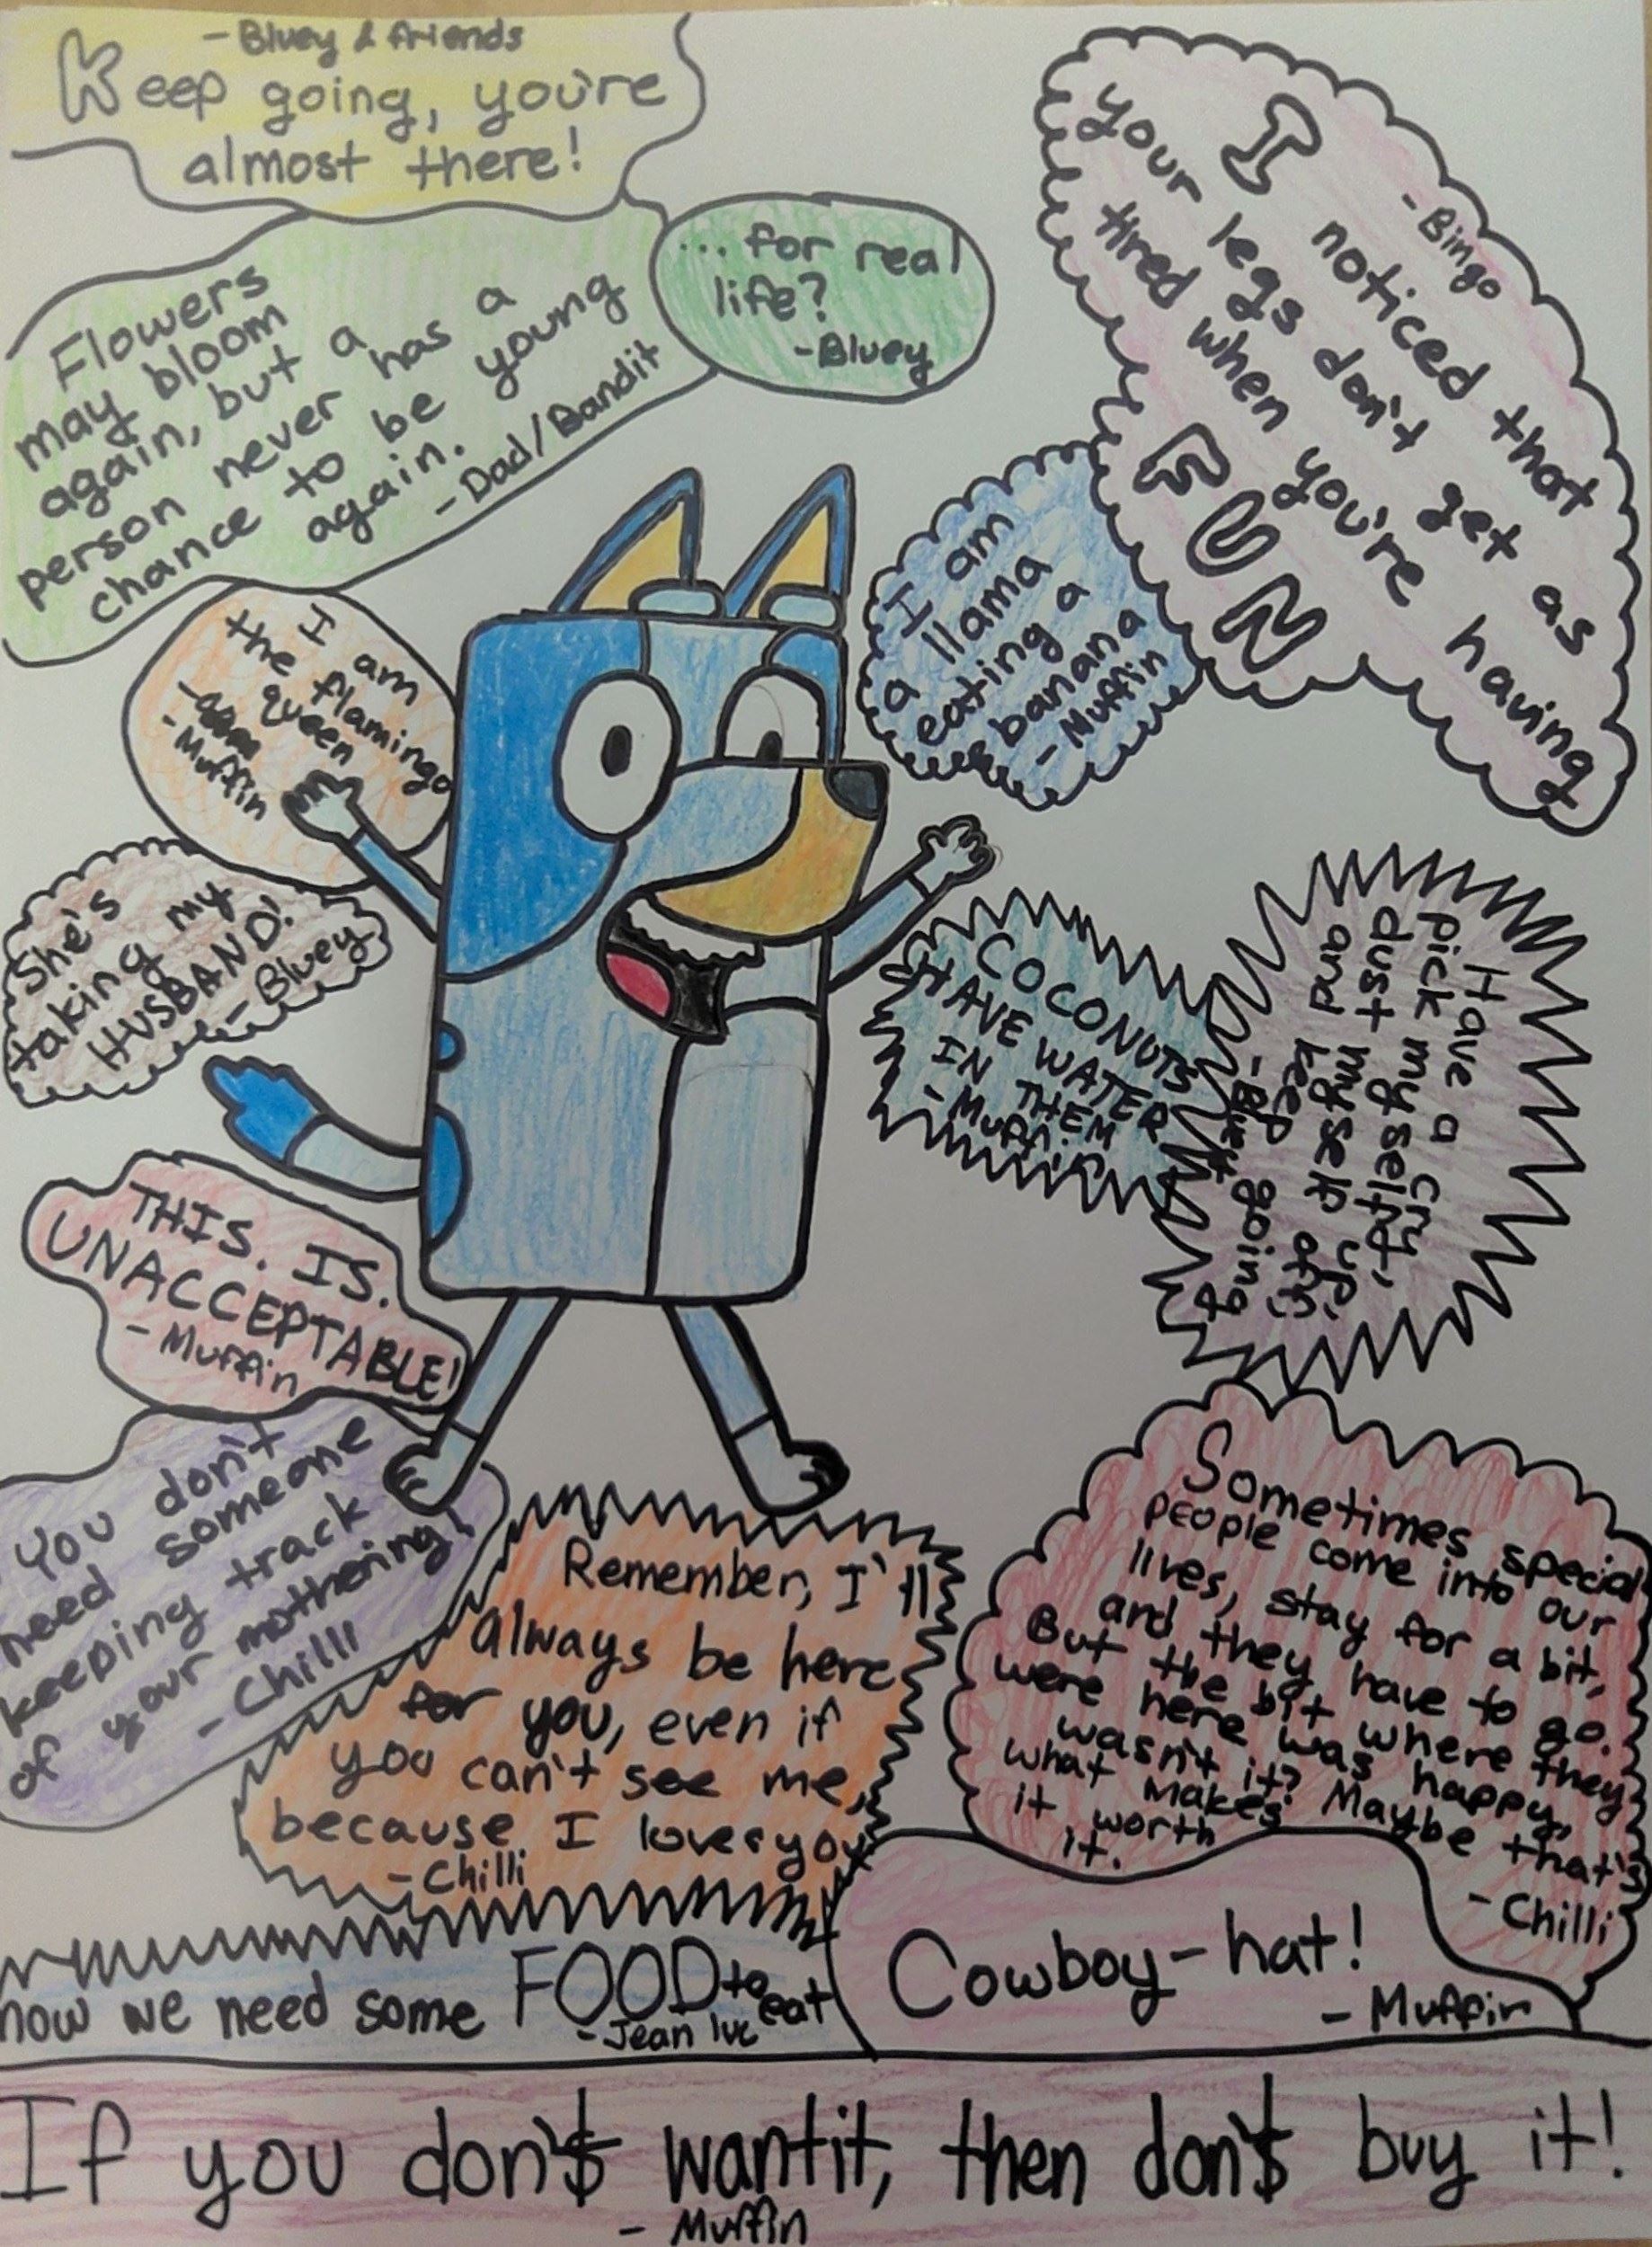 - Bluey & friends
Keep going, you're
almost there!
... for real
life?
- Bluey
Flowers
may bloom
again, but a
person never has a
chance to be young
again.
- Dad/Bandit
- Bingo
I noticed that
your legs don't get as
tired when you're having
FUN
I am
a llama
eating a
banana
- Muffin
I am
the flamingo
queen
- Muffin
She's
taking my
HUSBAND!
- Bluey
COCONUTS
HAVE WATER
IN THEM
- Muffin
Have a cry,
pick myself up,
dust myself off,
and keep going
THIS. IS.
UNACCEPTABLE!
- Muffin
You don't
need someone
keeping track
of your mothering!
- Chilli
Remember, I'll
Always be here
for you, even if
you can't see me,
because I love you
- Chilli
Sometimes special
people come into our
lives, stay for a bit,
and they have to go.
But the bit where they
were here was happy,
wasn't it? Maybe that's
what makes
it worth
it.
- Chilli
now we need some FOOD to eat
- Jean luc
Cowboy-hat!
- Muffin
If you don'$ want it, then don'$ buy it!
- Muffin